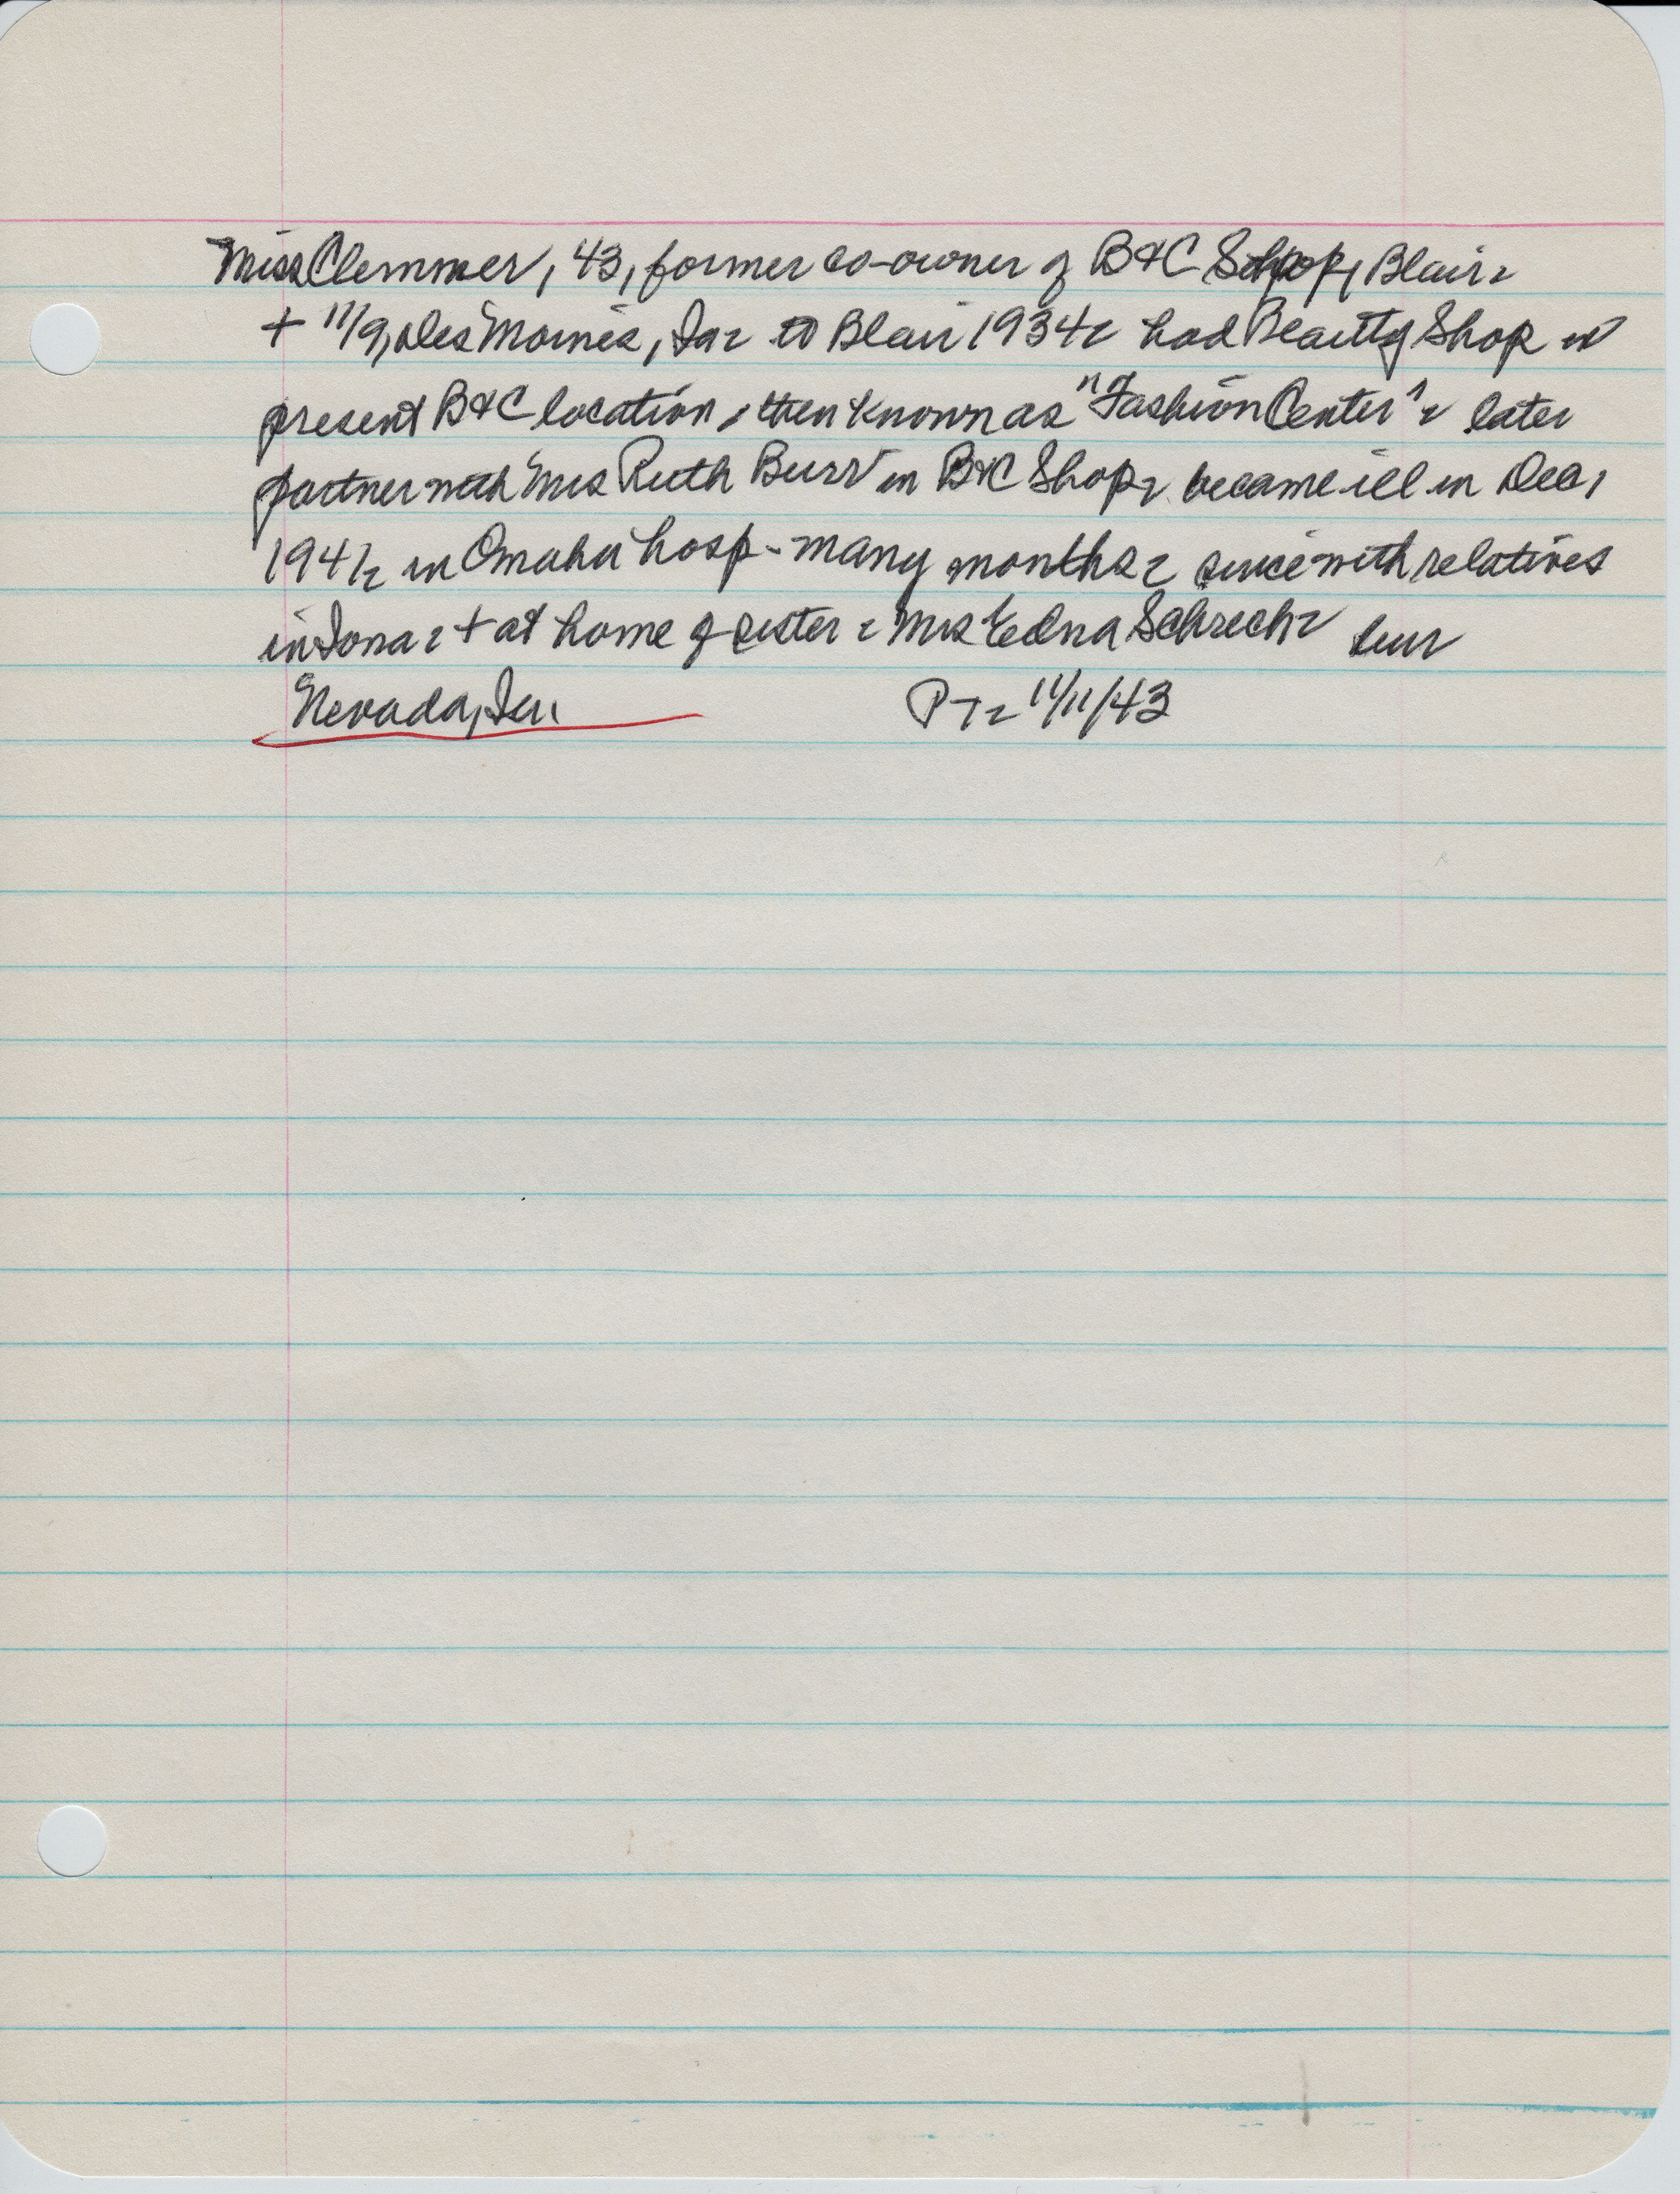 Miss Clemmer, 43, former co-owner of B&C Shop, Blair-
+ 11/9, Des Moines, Ia- to Blair 1934- had Beauty Shop in
present B&C location, then known as "Fashion Center"- later
partner with Mrs Ruth Burr in B&C Shop- became ill in Dec,
1941- in Omaha hosp- many months- since with relatives
in Iowa- + at home of sister- Mrs Edna Schreck- bur
Nevada, Ia. PT- 11/11/43